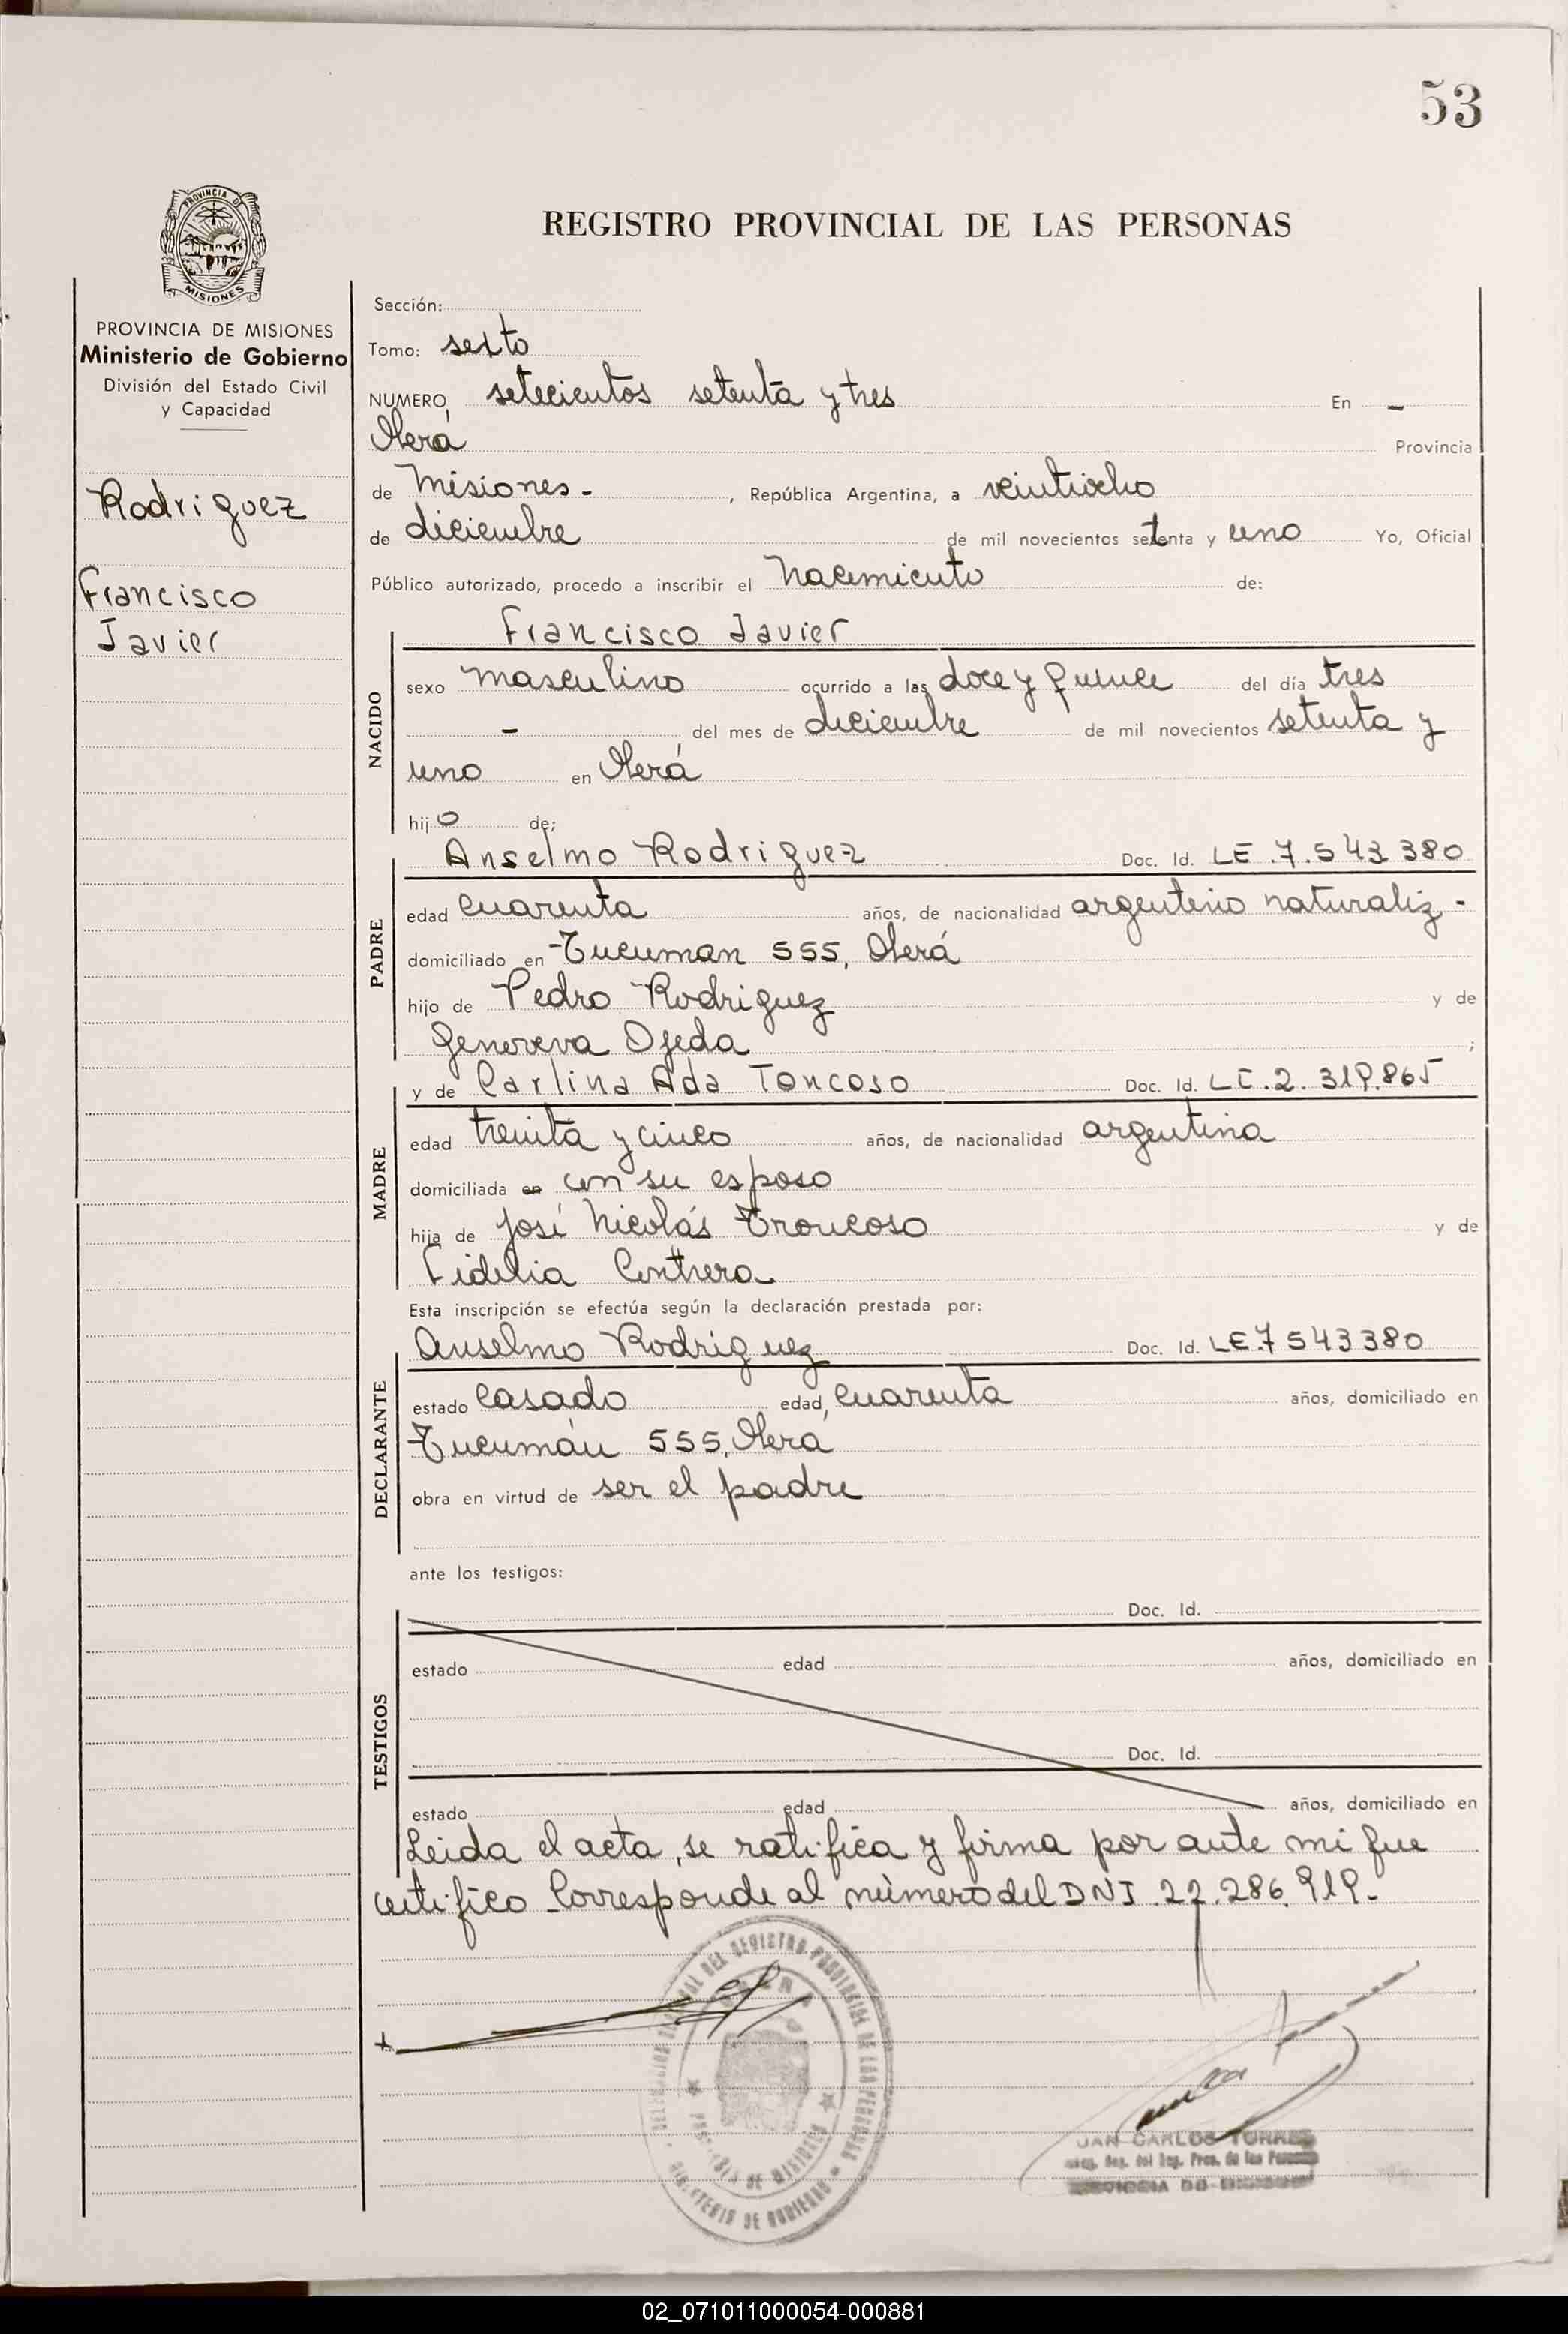 53
PROVINCIA DE
MISIONES
REGISTRO PROVINCIAL DE LAS PERSONAS
PROVINCIA DE MISIONES
Ministerio de Gobierno
División del Estado Civil
y Capacidad
Rodriguez
Francisco
Javier
Sección:
Tomo: sexto
NUMERO, setecientos setenta y tres En -
Oberá Provincia
de Misiones.- , República Argentina, a veintiocho
de diciembre de mil novecientos setenta y uno Yo, Oficial
Público autorizado, procedo a inscribir el nacimiento de:
NACIDO
Francisco Javier
sexo masculino ocurrido a las doce y quince del día tres
- del mes de diciembre de mil novecientos setenta y
uno en Oberá
hijo de;
PADRE
Anselmo Rodriguez Doc. Id. LE.7.543 380
edad cuarenta años, de nacionalidad argentino naturaliz-
domiciliado en Tucuman 555, Oberá
hijo de Pedro Rodriguez y de
Genoveva Ojeda ;
MADRE
y de Carlina Ada Toncoso Doc. Id. LC.2.319.865
edad treinta y cinco años, de nacionalidad argentina
domiciliada en con su esposo
hija de José Nicolás Troncoso y de
Fidelia Contrera
Esta inscripción se efectúa según la declaración prestada por:
DECLARANTE
Anselmo Rodriguez Doc. Id. LE.7543380
estado casado edad, cuarenta años, domiciliado en
Tucumán 555, Oberá
obra en virtud de ser el padre
ante los testigos:
TESTIGOS
Doc. Id.
estado edad años, domiciliado en
Doc. Id.
estado edad años, domiciliado en
Leida el acta, se ratifica y firma por ante mi que
certifico. Corresponde al número del DNI 22.286.919.-
PROVINCIA DE MISIONES
MINISTERIO DE GOBIERNO
JUAN CARLOS TORRES
PROVINCIA DE MISIONES
02_071011000054-000881